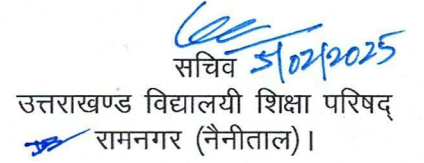 सचिव 5/02/2025
उत्तराखण्ड विद्यालयी शिक्षा परिषद्
रामनगर (नैनीताल)।